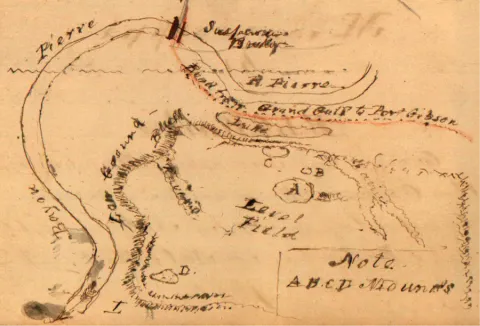 Pierre
Suspension
Bridge
B. Pierre
Road from Grand Gulf to Port Gibson
Low Ground
Bluff
Bayou
C
B
A
Level
Field
D.
Note
A B C D Mounds